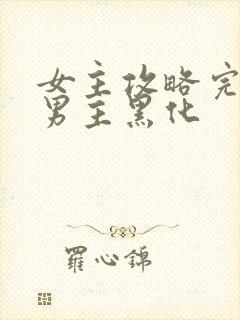 女主攻略完
男主黑化
羅心錦